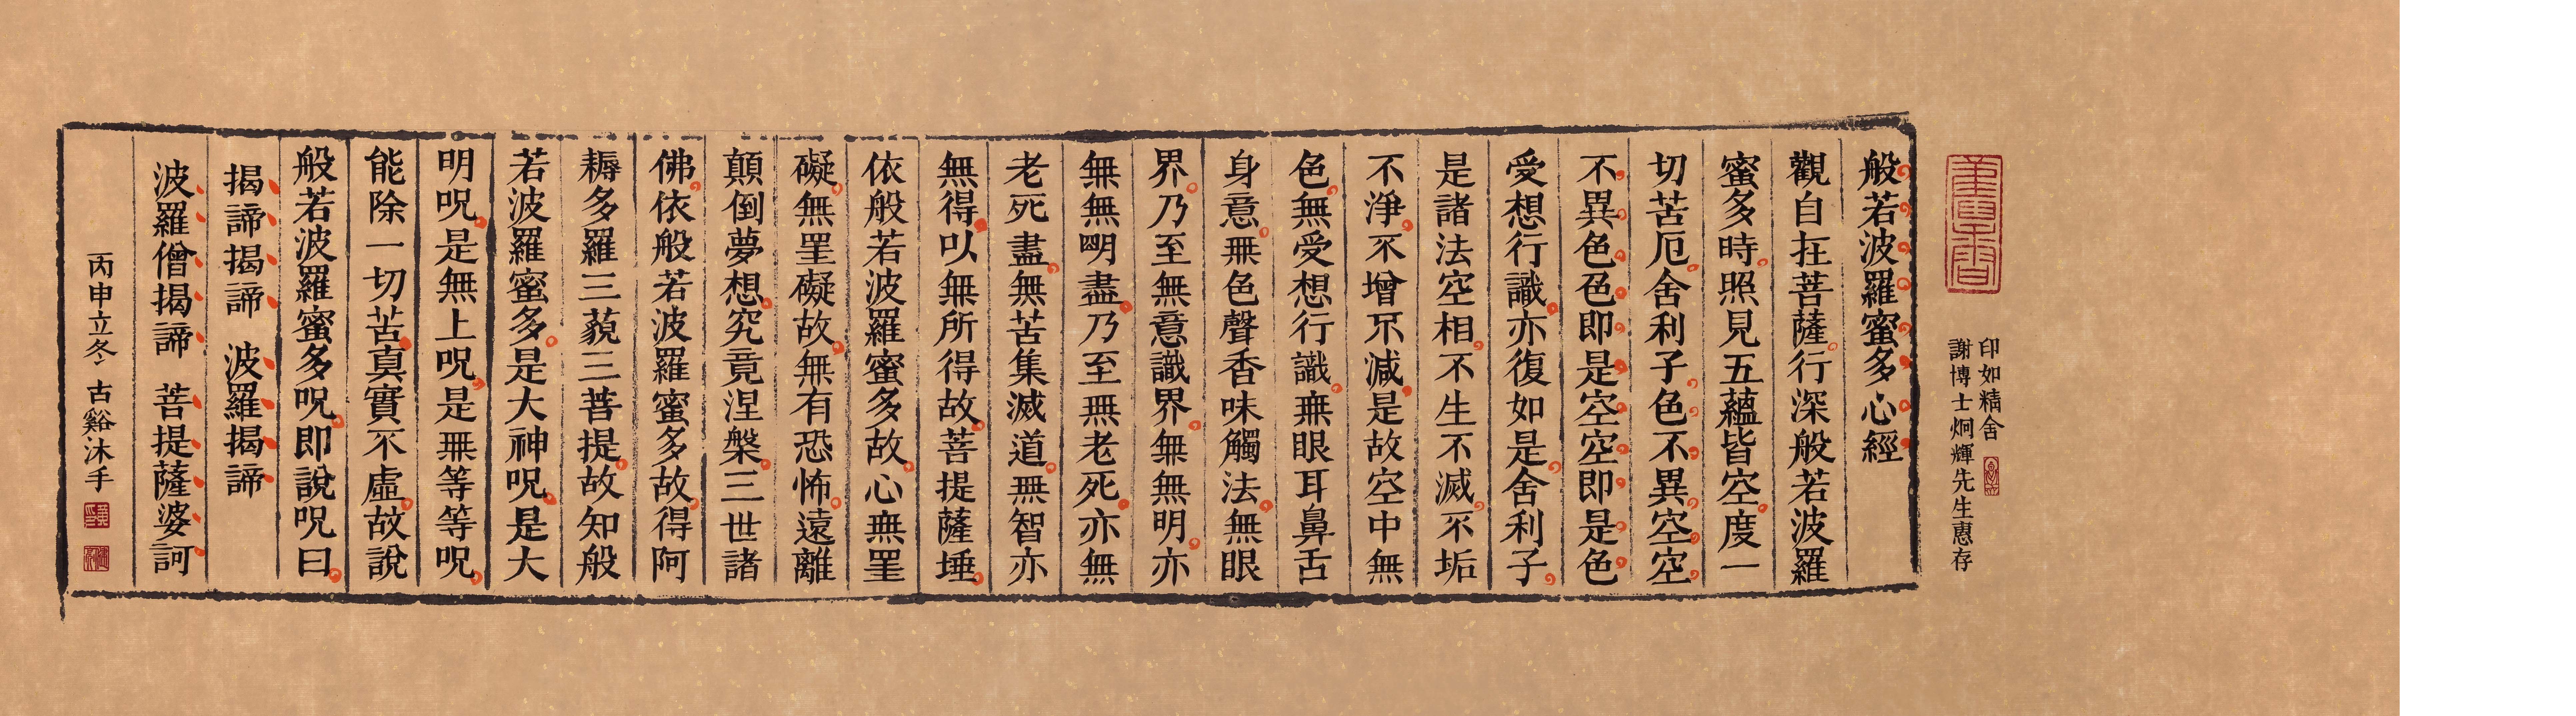 印如精舍
謝博士炯輝先生惠存
般若波羅蜜多心經
觀自在菩薩行深般若波羅
蜜多時照見五蘊皆空度一
切苦厄舍利子色不異空空
不異色色即是空空即是色
受想行識亦復如是舍利子
是諸法空相不生不滅不垢
不淨不增不減是故空中無
色無受想行識無眼耳鼻舌
身意無色聲香味觸法無眼
界乃至無意識界無無明亦
無無明盡乃至無老死亦無
老死盡無苦集滅道無智亦
無得以無所得故菩提薩埵
依般若波羅蜜多故心無罣
礙無罣礙故無有恐怖遠離
顛倒夢想究竟涅槃三世諸
佛依般若波羅蜜多故得阿
耨多羅三藐三菩提故知般
若波羅蜜多是大神呪是大
明呪是無上呪是無等等呪
能除一切苦真實不虛故說
般若波羅蜜多呪即說呪曰
揭諦揭諦 波羅揭諦
波羅僧揭諦 菩提薩婆訶
丙申立冬 古谿沐手